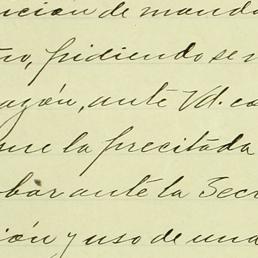 ución de manda
no, pidiendo se
azón, ante Vd. co
me la precitada
bar ante la Secr
ión y uso de una